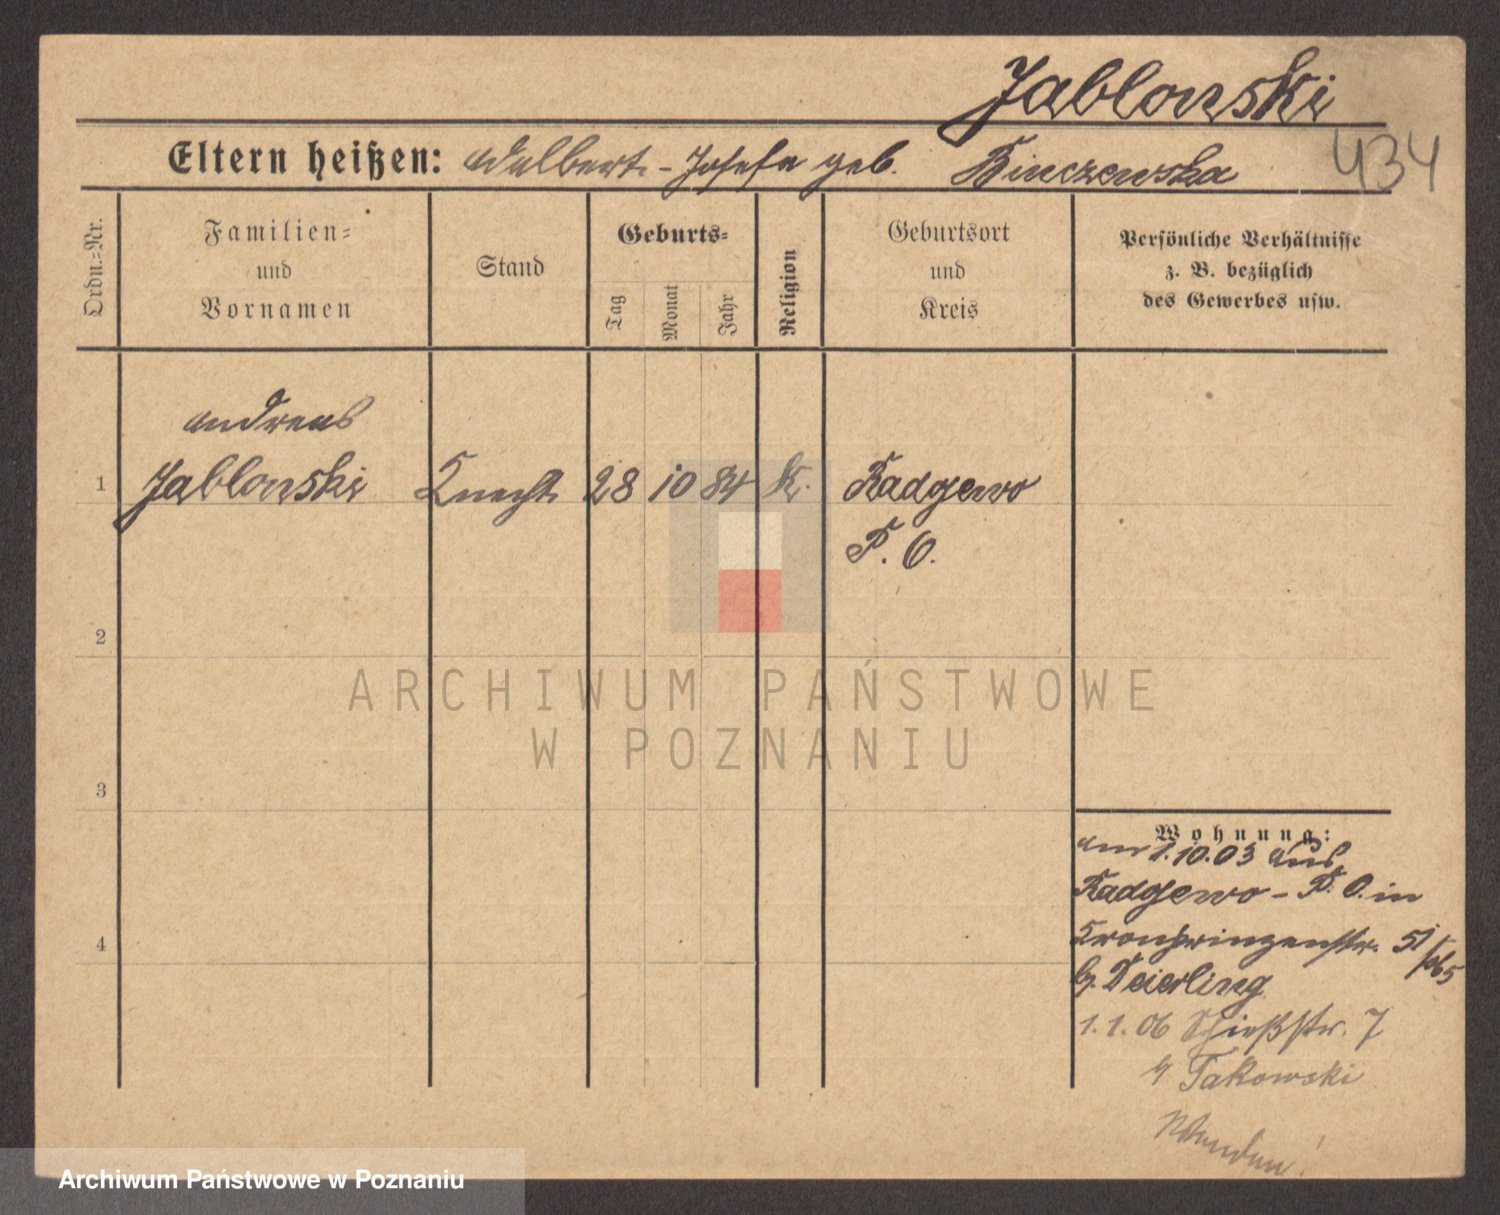 Jablonski
434
Eltern heißen: Adalbert - Josefa geb. Binczewska
Ordn.-Nr.
Familien-
und
Vornamen
Stand
Geburts-
Tag
Monat
Jahr
Religion
Geburtsort
und
Kreis
Persönliche Verhältnisse
z. B. bezüglich
des Gewerbes usw.
Andreas
1 Jablonski Knecht 28 10 84 K. Radgewo
P. O.
2
ARCHIWUM PAŃSTWOWE
W POZNANIU
3
Wohnung:
am 1.10.03 aus
Radgewo - P. O. in
Kronprinzenstr. 51/
4
b. Deierling
1.1.06 Schießstr. 7
b Takowski
Wenden!
Archiwum Państwowe w Poznaniu